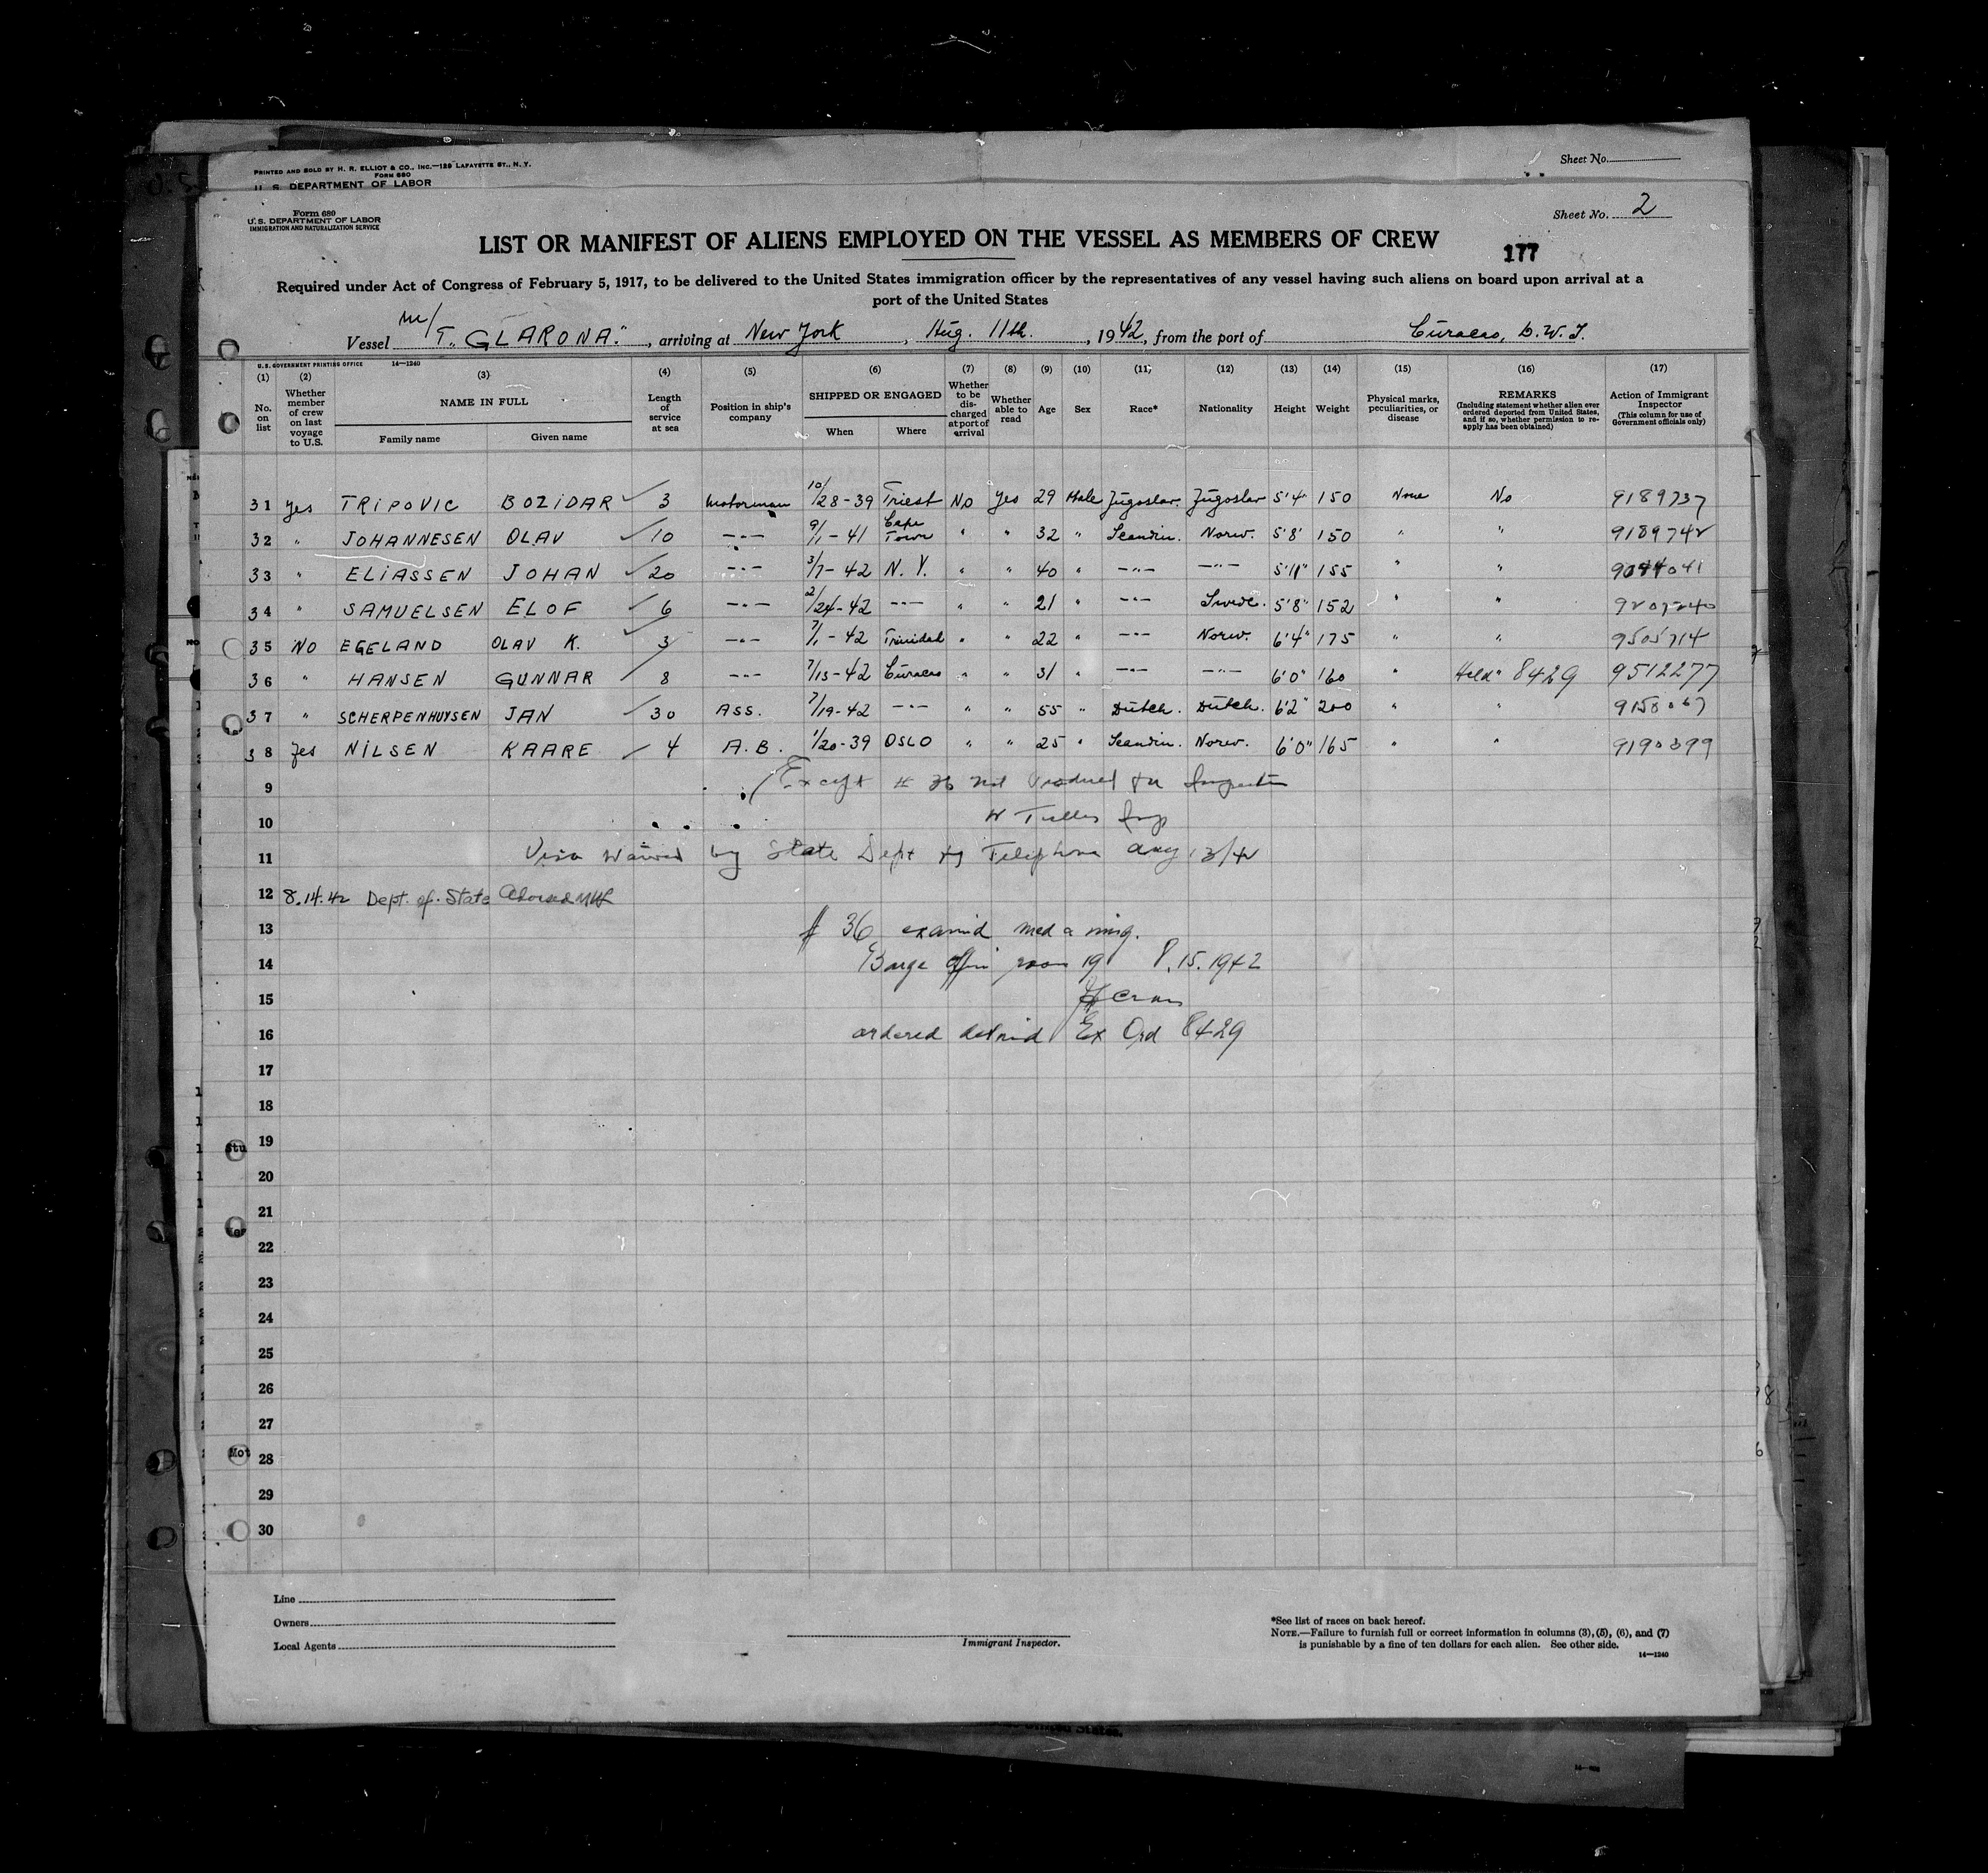 Sheet No.
PRINTED AND SOLD BY H. R. ELLIOT & CO., INC.—129 LAFAYETTE ST., N. Y.
FORM 680
U. S. DEPARTMENT OF LABOR
Form 680
U. S. DEPARTMENT OF LABOR
IMMIGRATION AND NATURALIZATION SERVICE
Sheet No. 2
LIST OR MANIFEST OF ALIENS EMPLOYED ON THE VESSEL AS MEMBERS OF CREW
177
Required under Act of Congress of February 5, 1917, to be delivered to the United States immigration officer by the representatives of any vessel having such aliens on board upon arrival at a
port of the United States
Vessel M/T. "GLARONA", arriving at New York, Aug. 11th, 1942, from the port of Curacao, D.W.I.
U. S. GOVERNMENT PRINTING OFFICE 14—1240
(1) No. on list
(2) Whether member of crew on last voyage to U.S.
(3) NAME IN FULL Family name Given name
(4) Length of service at sea
(5) Position in ship's company
(6) SHIPPED OR ENGAGED When Where
(7) Whether to be discharged at port of arrival
(8) Whether able to read
(9) Age
(10) Sex
(11) Race*
(12) Nationality
(13) Height
(14) Weight
(15) Physical marks, peculiarities, or disease
(16) REMARKS (Including statement whether alien ever ordered deported from United States, and if so, whether permission to reapply has been obtained)
(17) Action of Immigrant Inspector (This column for use of Government officials only)
31 Yes TRIPOVIC BOZIDAR ✓ 3 Motorman 10/28-39 Triest No Yes 29 Male Jugoslav. Jugoslav 5'4" 150 None No 9189737
32 " JOHANNESEN OLAV ✓ 10 -"- 9/1-41 Cape Town " " 32 " Scandin. Norw. 5'8" 150 " " 9189742
33 " ELIASSEN JOHAN ✓ 20 -"- 3/7-42 N.Y. " " 40 " -"- -"- 5'11" 155 " "
34 " SAMUELSEN ELOF ✓ 6 -"- 2/24-42 -"- " " 21 " -"- Swede. 5'8" 152 " "
35 NO EGELAND OLAV K. ✓ 3 -"- 7/1-42 Trinidad " " 22 " -"- Norw. 6'4" 175 " " 9505714
36 " HANSEN GUNNAR ✓ 8 -"- 7/15-42 Curacao " " 31 " -"- -"- 6'0" 160 " Held" 8429 9512277
37 " SCHERPENHUYSEN JAN ✓ 30 ASS. 7/19-42 -"- " " 55 " Dutch. Dutch. 6'2" 200 " " 9158067
38 Yes NILSEN KAARE ✓ 4 A.B. 1/20-39 OSLO " " 25 " Scandin. Norw. 6'0" 165 " " 9190399
9 Except # 36 not Produced for Inspection
10 Insp
11 Visa Waived by State Dept by Telephone Aug 13/42
12 8.14.42 Dept. of State
13 # 36 examined med a
14 Barge office room 19 8.15.1942
15
16 ordered detained Ex Ord 8429
17
18
19
20
21
22
23
24
25
26
27
28
29
30
Stu
Mot
Line
Owners
Local Agents
Immigrant Inspector.
*See list of races on back hereof.
NOTE.—Failure to furnish full or correct information in columns (3), (5), (6), and (7)
is punishable by a fine of ten dollars for each alien. See other side.
14—1240